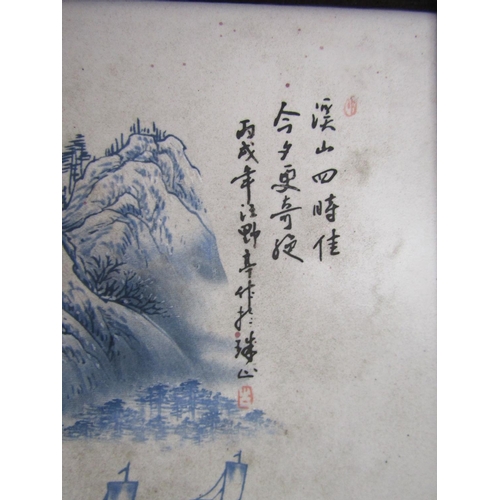 溪山四時佳
今夕更奇绝
丙戌年汪野亭作於珠山